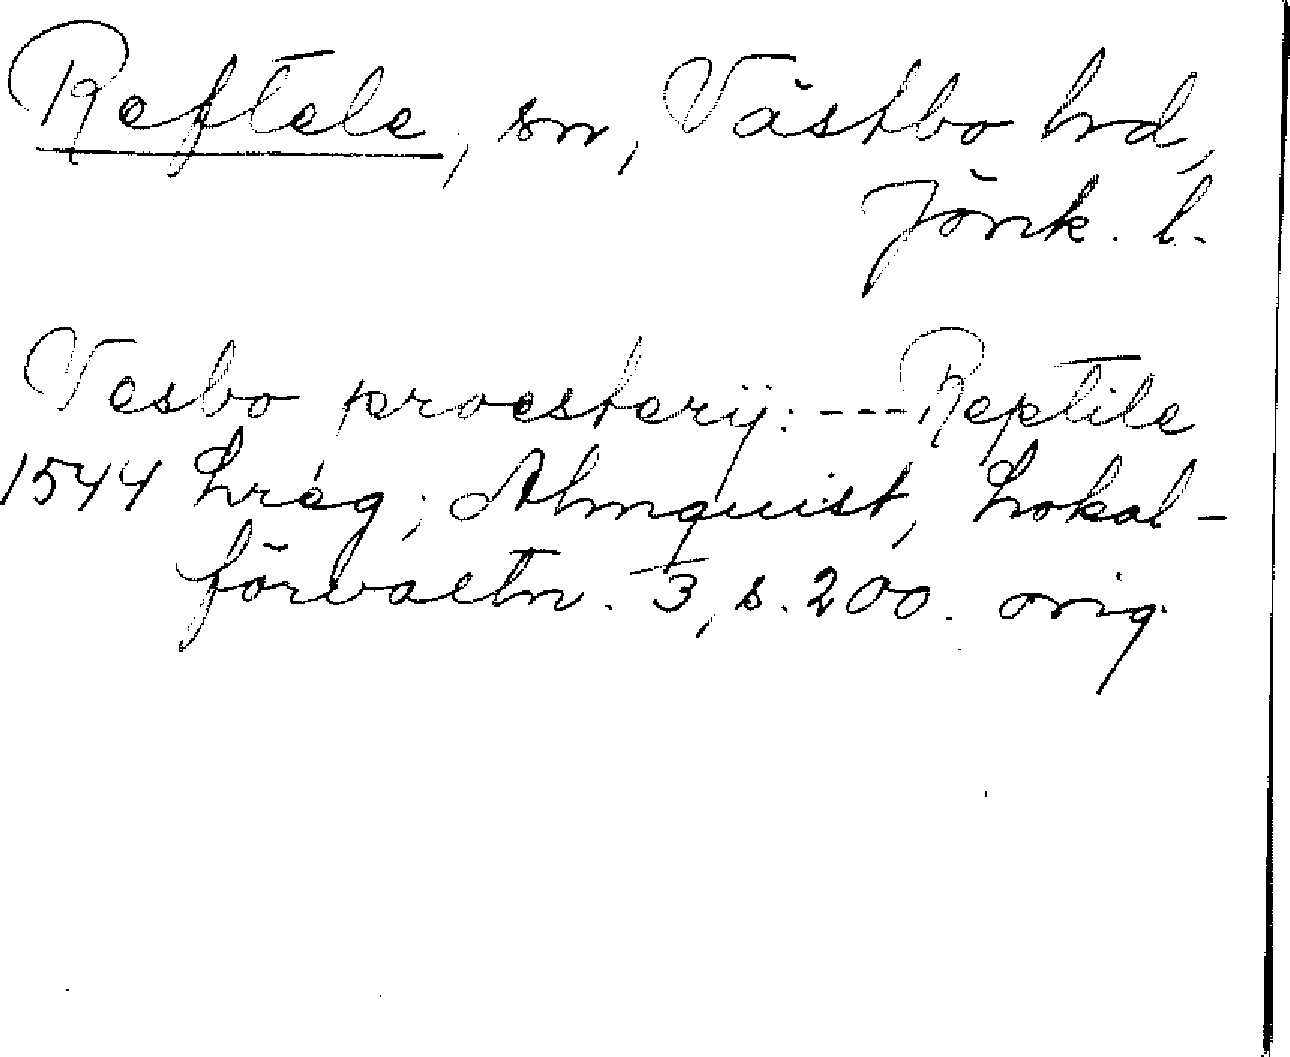 Reftele, sn, Västbo hd,
Jönk. l.
Vesbo proesterij: --- Reptile
1544 hrág; Almquist, Lokal-
förvaltn. 3, s. 200. orig.